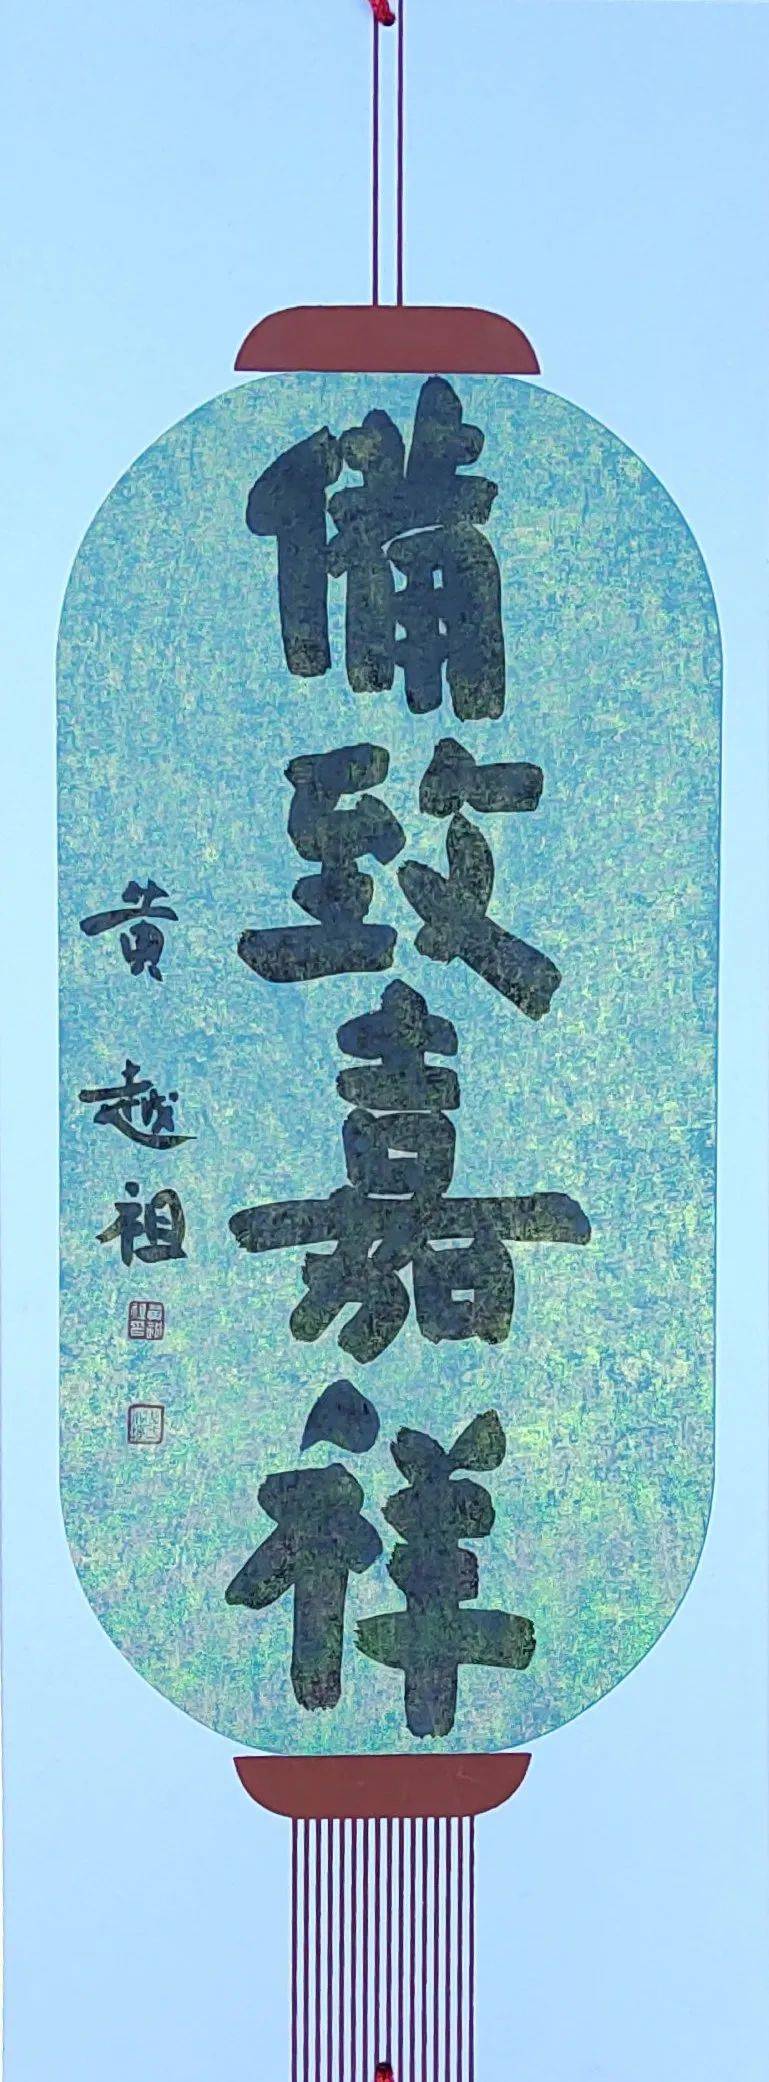 備致嘉祥
黄越祖